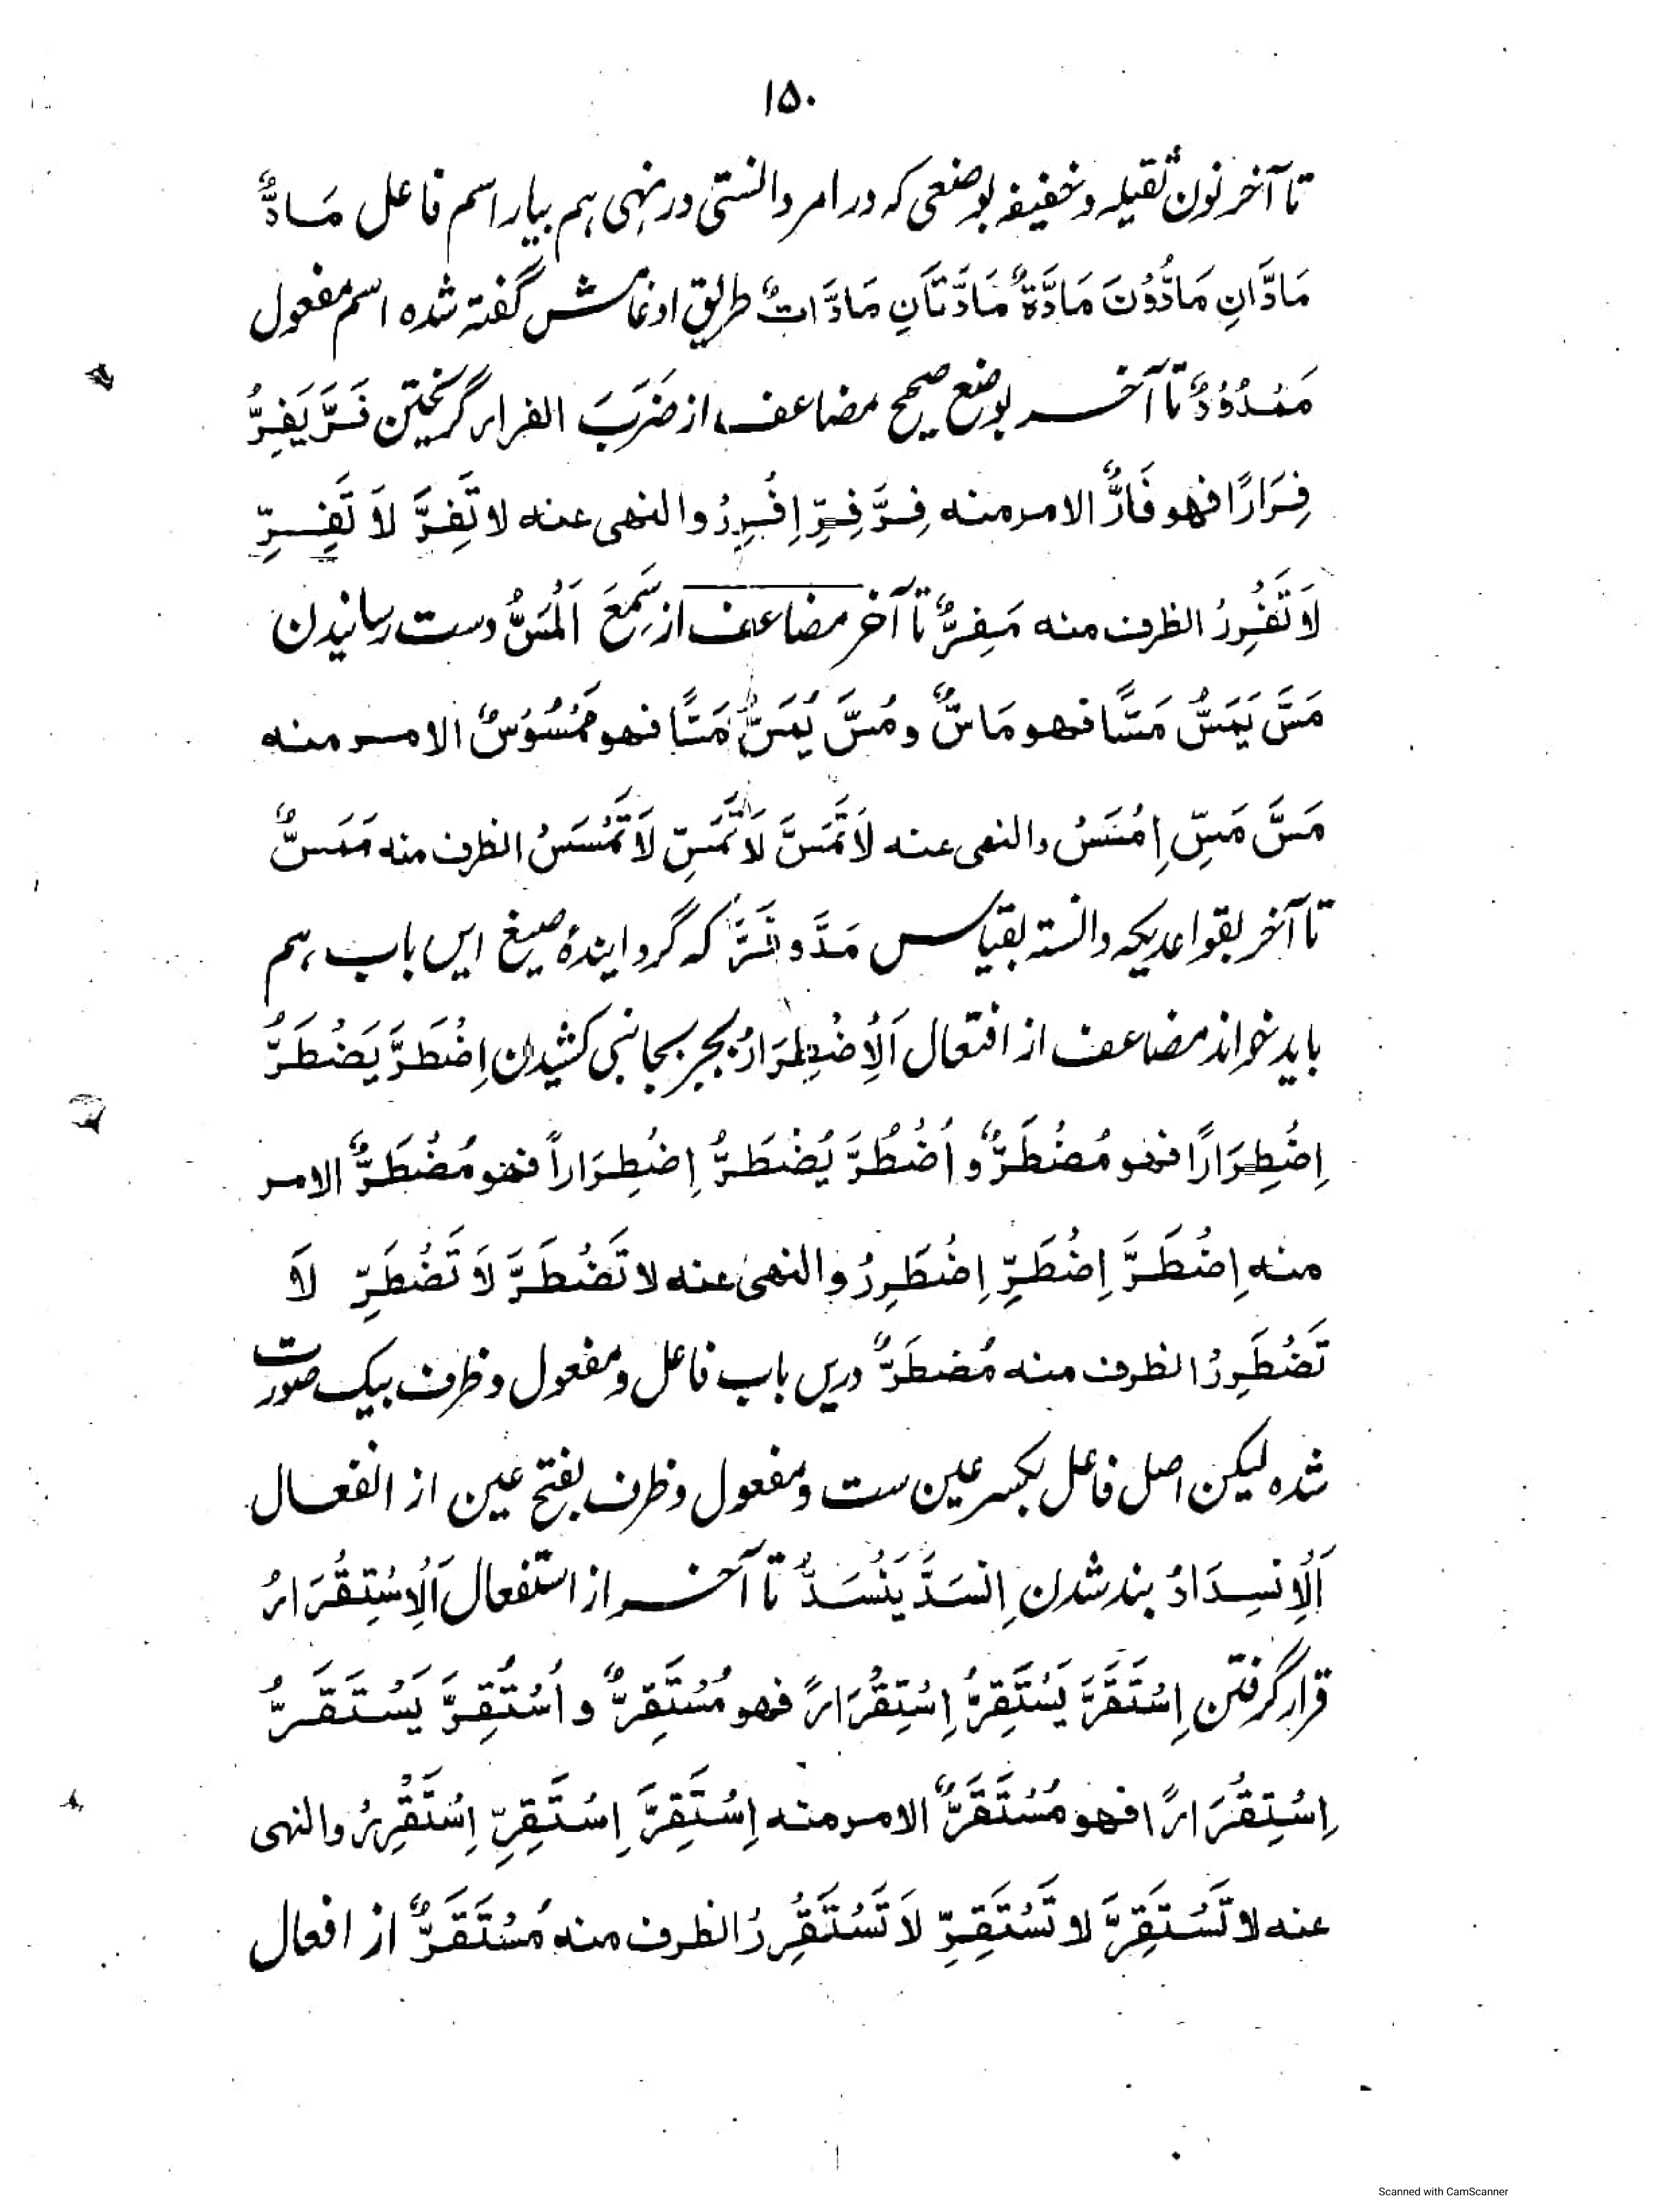 ۱۵۰
تا آخر نون ثقیله و خفیفه بوضعی که در امر دانستی در نهی هم بیار اسم فاعل مَادٌّ
مَادَّانِ مَادُّوْنَ مَادَّةٌ مَادَّتَانِ مَادَّاتٌ طریق ادغامش گفته شده اسم مفعول
مَمْدُوْدٌ تا آخر بوضع صحیح مضاعف از ضَرَبَ الفرار گریختن فَرَّ يَفِرُّ
فِرَارًا فهو فَارٌّ الامر منه فِرَّ فِرِّ اِفْرِرْ والنهی عنه لا تَفِرَّ لَا تَفِرِّ
لَا تَفْرِرْ الظرف منه مَفِرٌّ تا آخر مضاعف از سَمِعَ اَلْمَسُّ دست رسانیدن
مَسَّ يَمَسُّ مَسًّا فهو مَاسٌّ و مُسَّ يُمَسُّ مَسًّا فهو مَمْسُوْسٌ الامر منه
مَسَّ مَسِّ اِمْسَسْ والنهی عنه لَا تَمَسَّ لَا تَمَسِّ لَا تَمْسَسْ الظرف منه مَمَسٌّ
تا آخر بقواعدیکه دانسته بقیاس مَدَّ و فَرَّ که گردانیدهٔ صیغ ایں باب ہم
باید خواند مضاعف از افتعال اَلْاِضْطِرَارُ بجبر بجانبی کشیدن اِضْطَرَّ يَضْطَرُّ
اِضْطِرَارًا فهو مُضْطَرٌّ و اُضْطُرَّ يُضْطَرُّ اِضْطِرَاراً فهو مُضْطَرٌّ الامر
منه اِضْطَرَّ اِضْطَرِّ اِضْطَرِرْ والنهی عنه لا تَضْطَرَّ لَا تَضْطَرِّ لَا
تَضْطَرِرْ الظرف منه مُضْطَرٌّ دریں باب فاعل و مفعول و ظرف بیک صورت
شده لیکن اصل فاعل بکسر عین ست و مفعول و ظرف بفتح عین از انفعال
اَلْاِنسِدَادُ بند شدن اِنسَدَّ يَنْسَدُّ تا آخر از استفعال اَلْاِسْتِقْرَارُ
قرار گرفتن اِسْتَقَرَّ يَسْتَقِرُّ اِسْتِقْرَارً فهو مُسْتَقِرٌّ و اُسْتُقِرَّ يَسْتَقَرُّ
اِسْتِقْرَارًا فهو مُسْتَقَرٌّ الامر منه اِسْتَقِرَّ اِسْتَقِرِّ اِسْتَقْرِرْ والنهی
عنه لا تَسْتَقِرَّ لا تَسْتَقِرِّ لَا تَسْتَقْرِرْ الظرف منه مُسْتَقَرٌّ از افعال
Scanned with CamScanner